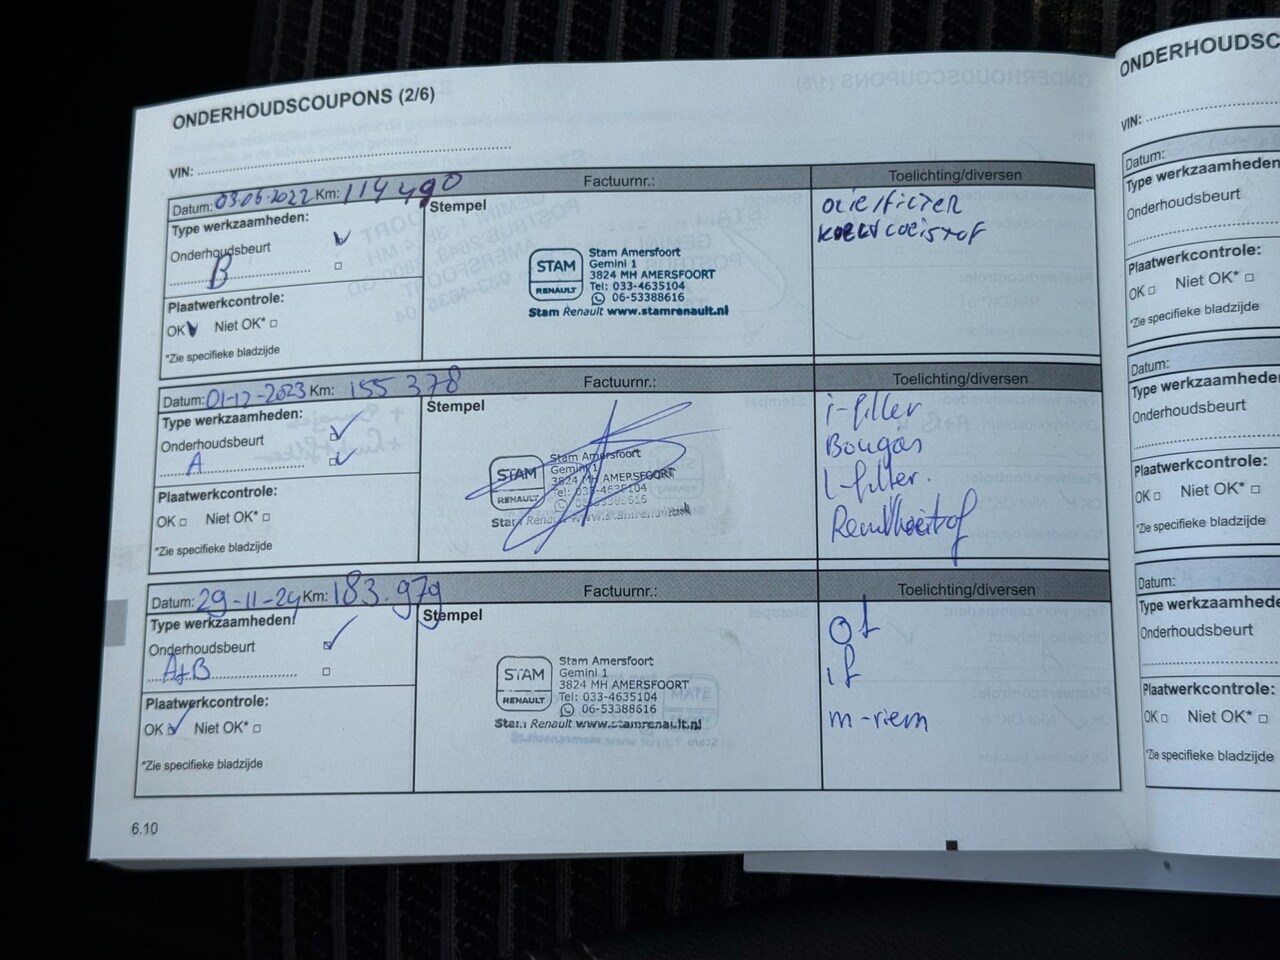 ONDERHOUDSCOUPONS (2/6)
VIN:
Datum: 03-06-2022 Km: 114490 Factuurnr.: Toelichting/diversen
Type werkzaamheden:
Onderhoudsbeurt
B
Plaatwerkcontrole:
OK Niet OK*
*Zie specifieke bladzijde
Stempel
STAM
RENAULT
Stam Amersfoort
Gemini 1
3824 MH AMERSFOORT
Tel: 033-4635104
06-53388616
Stam Renault www.stamrenault.nl
olie/filter
koelvloeistof
Datum: 01-12-2023 Km: 155 378 Factuurnr.: Toelichting/diversen
Type werkzaamheden:
Onderhoudsbeurt
A
Plaatwerkcontrole:
OK Niet OK*
*Zie specifieke bladzijde
Stempel
STAM
RENAULT
Stam Amersfoort
Gemini 1
3824 MH AMERSFOORT
Tel: 033-4635104
06-53388616
Stam Renault www.stamrenault.nl
i-filter
Bougies
l-filter.
Remvloeistof
Datum: 29-11-24 Km: 183.979 Factuurnr.: Toelichting/diversen
Type werkzaamheden:
Onderhoudsbeurt
A+B
Plaatwerkcontrole:
OK Niet OK*
*Zie specifieke bladzijde
Stempel
STAM
RENAULT
Stam Amersfoort
Gemini 1
3824 MH AMERSFOORT
Tel: 033-4635104
06-53388616
Stam Renault www.stamrenault.nl
of
if
m-riem
6.10
ONDERHOUDSC
VIN:
Datum:
Type werkzaamheden
Onderhoudsbeurt
Plaatwerkcontrole:
OK Niet OK*
*Zie specifieke bladzijde
Datum:
Type werkzaamheden
Onderhoudsbeurt
Plaatwerkcontrole:
OK Niet OK*
*Zie specifieke bladzijde
Datum:
Type werkzaamhede
Onderhoudsbeurt
Plaatwerkcontrole:
OK Niet OK*
*Zie specifieke bladzijde